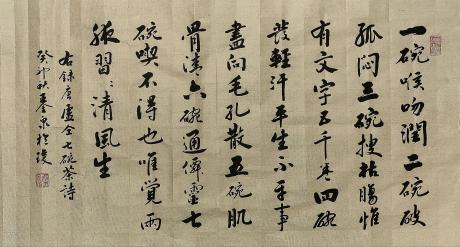 一碗喉吻潤二碗破
孤悶三碗搜枯腸惟
有文字五千卷四碗
發輕汗平生不平事
盡向毛孔散五碗肌
骨清六碗通僊靈七
碗喫不得也唯覺兩
腋習〻清風生
右錄唐盧仝七碗茶詩
癸卯秋